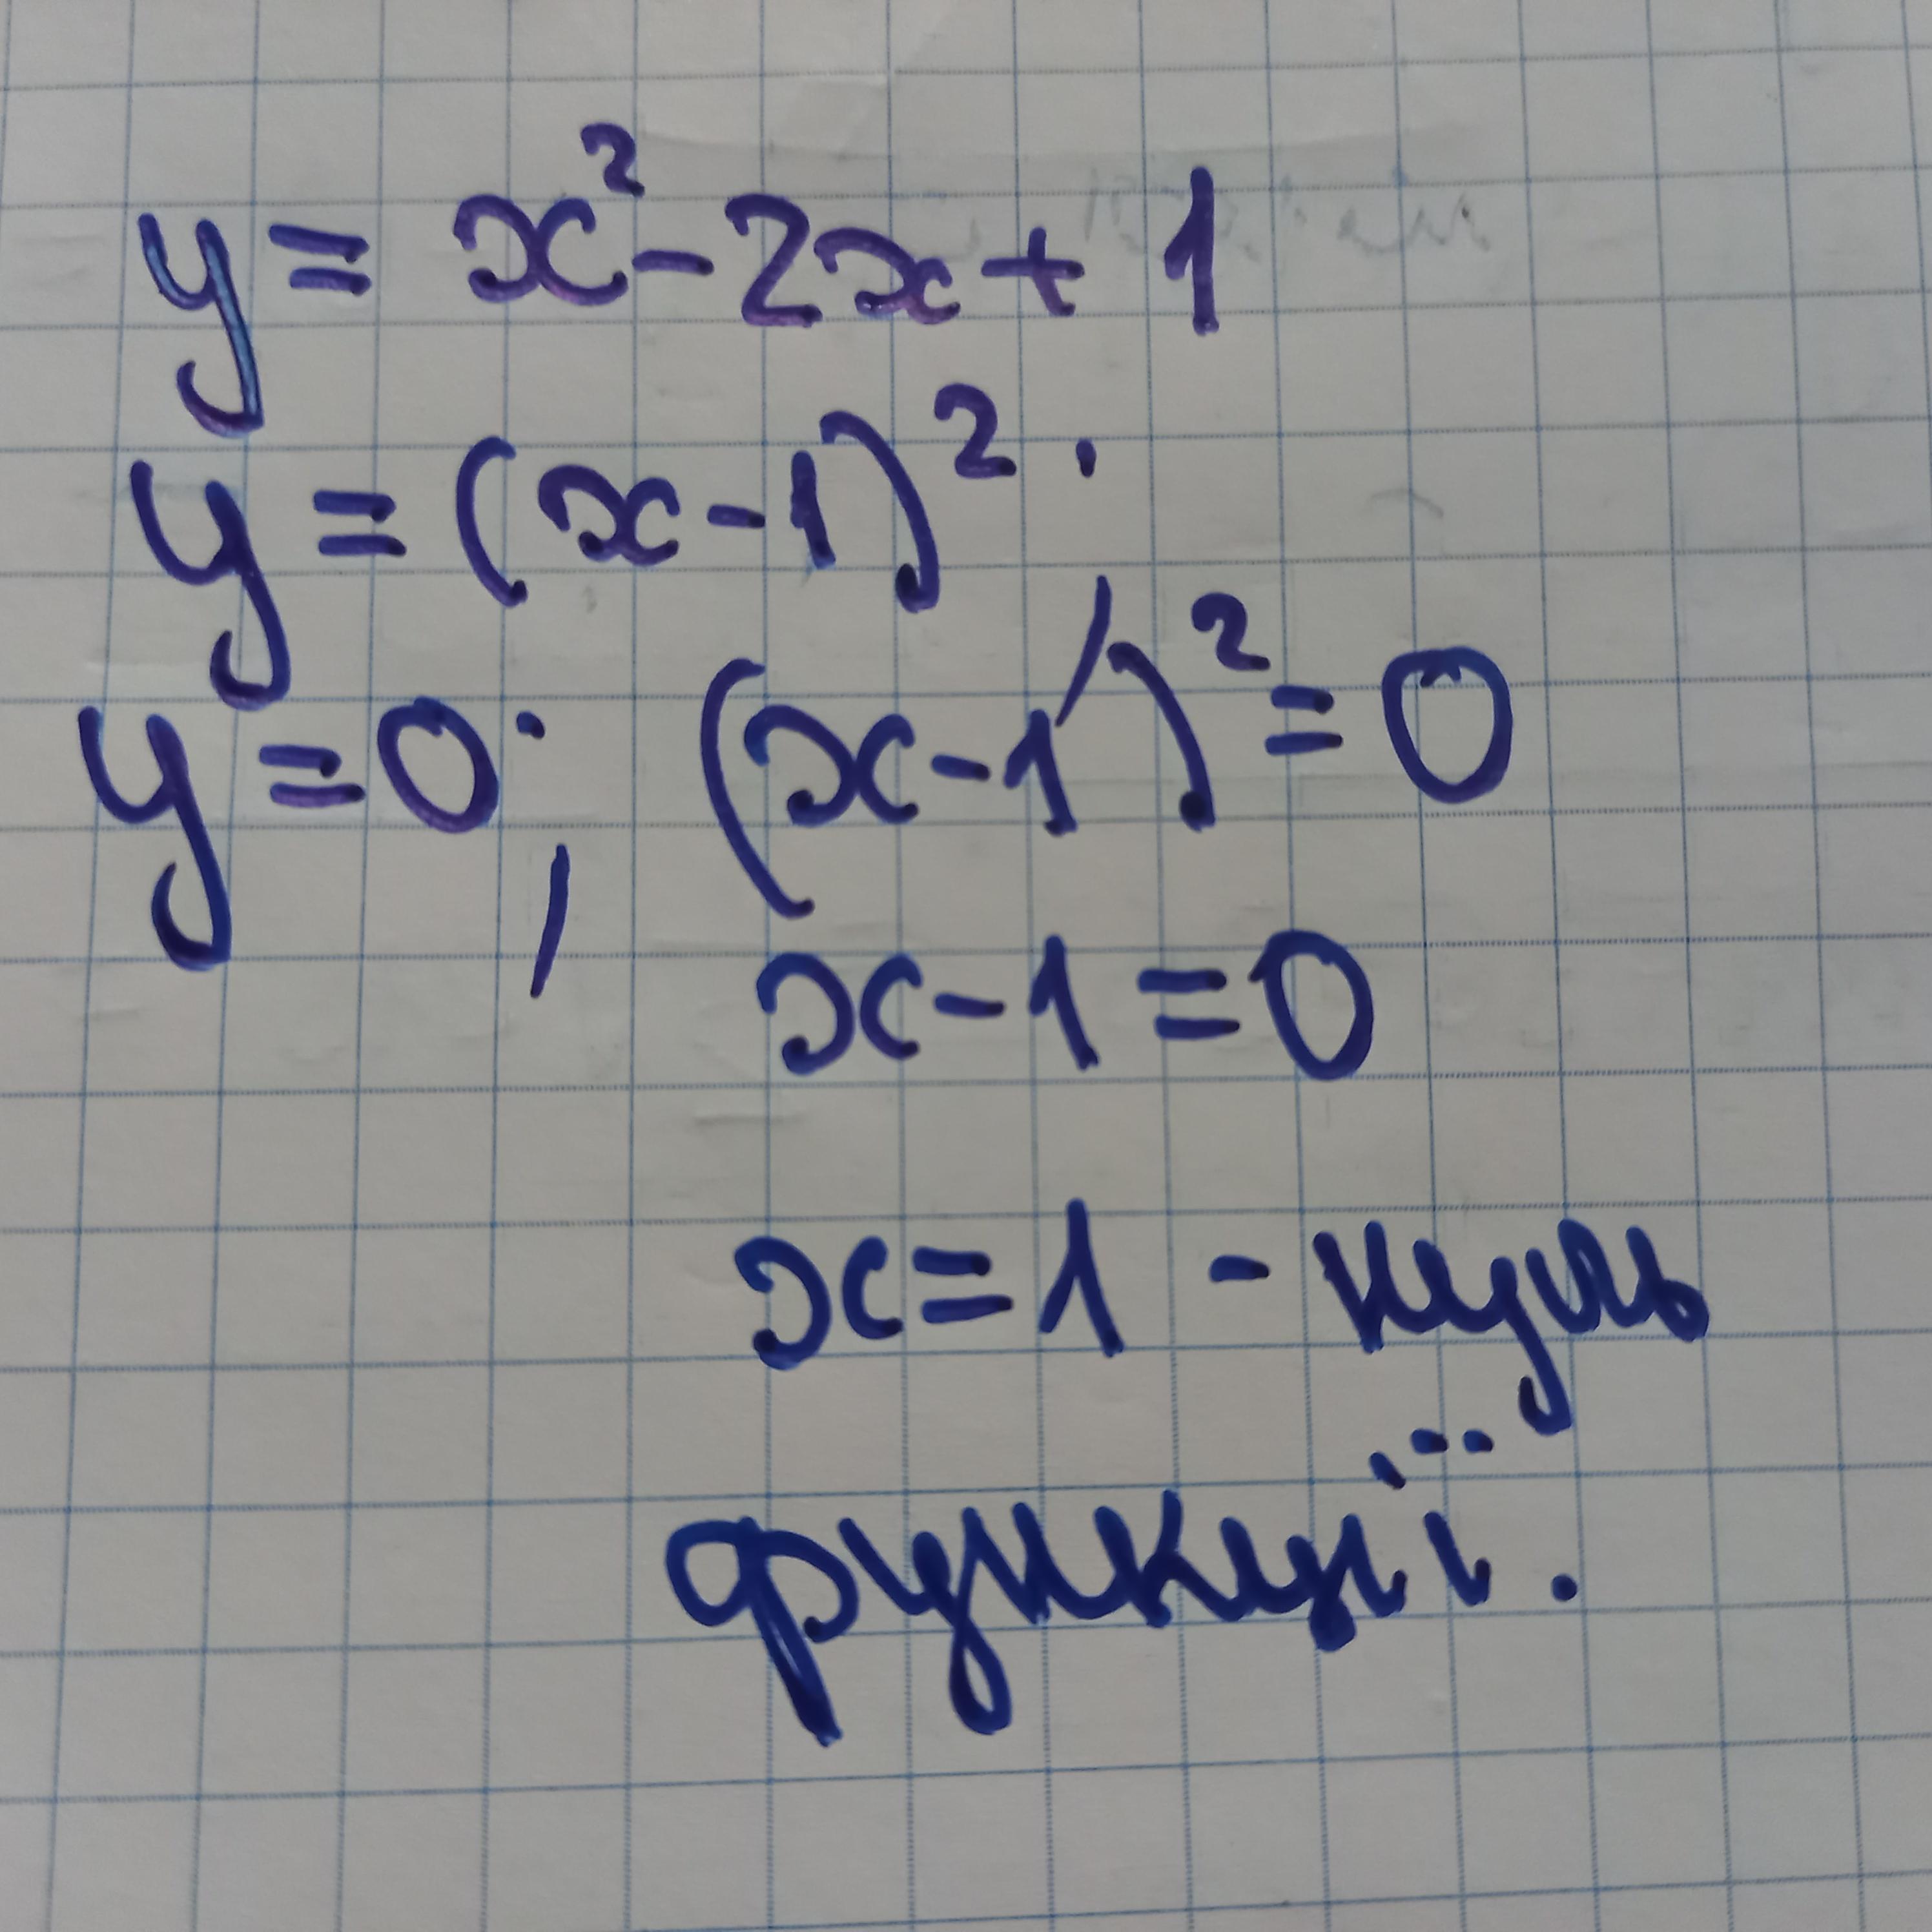 y = x² - 2x + 1
y = (x - 1)².
y = 0; (x - 1)² = 0
x - 1 = 0
x = 1 - нуль
функції.